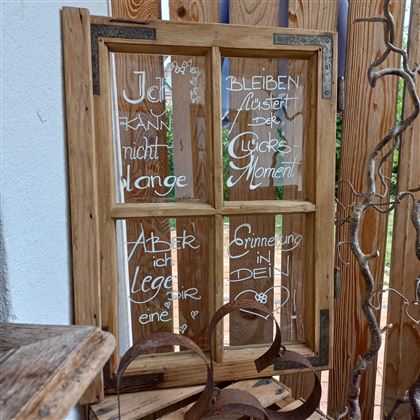 Ich
KANN
nicht
lange
BLEIBEN
flüstert
DER
GLÜCKS-
MOMENT
ABER
ich
Lege
DIR
eine
Erinnerung
IN
DEIN